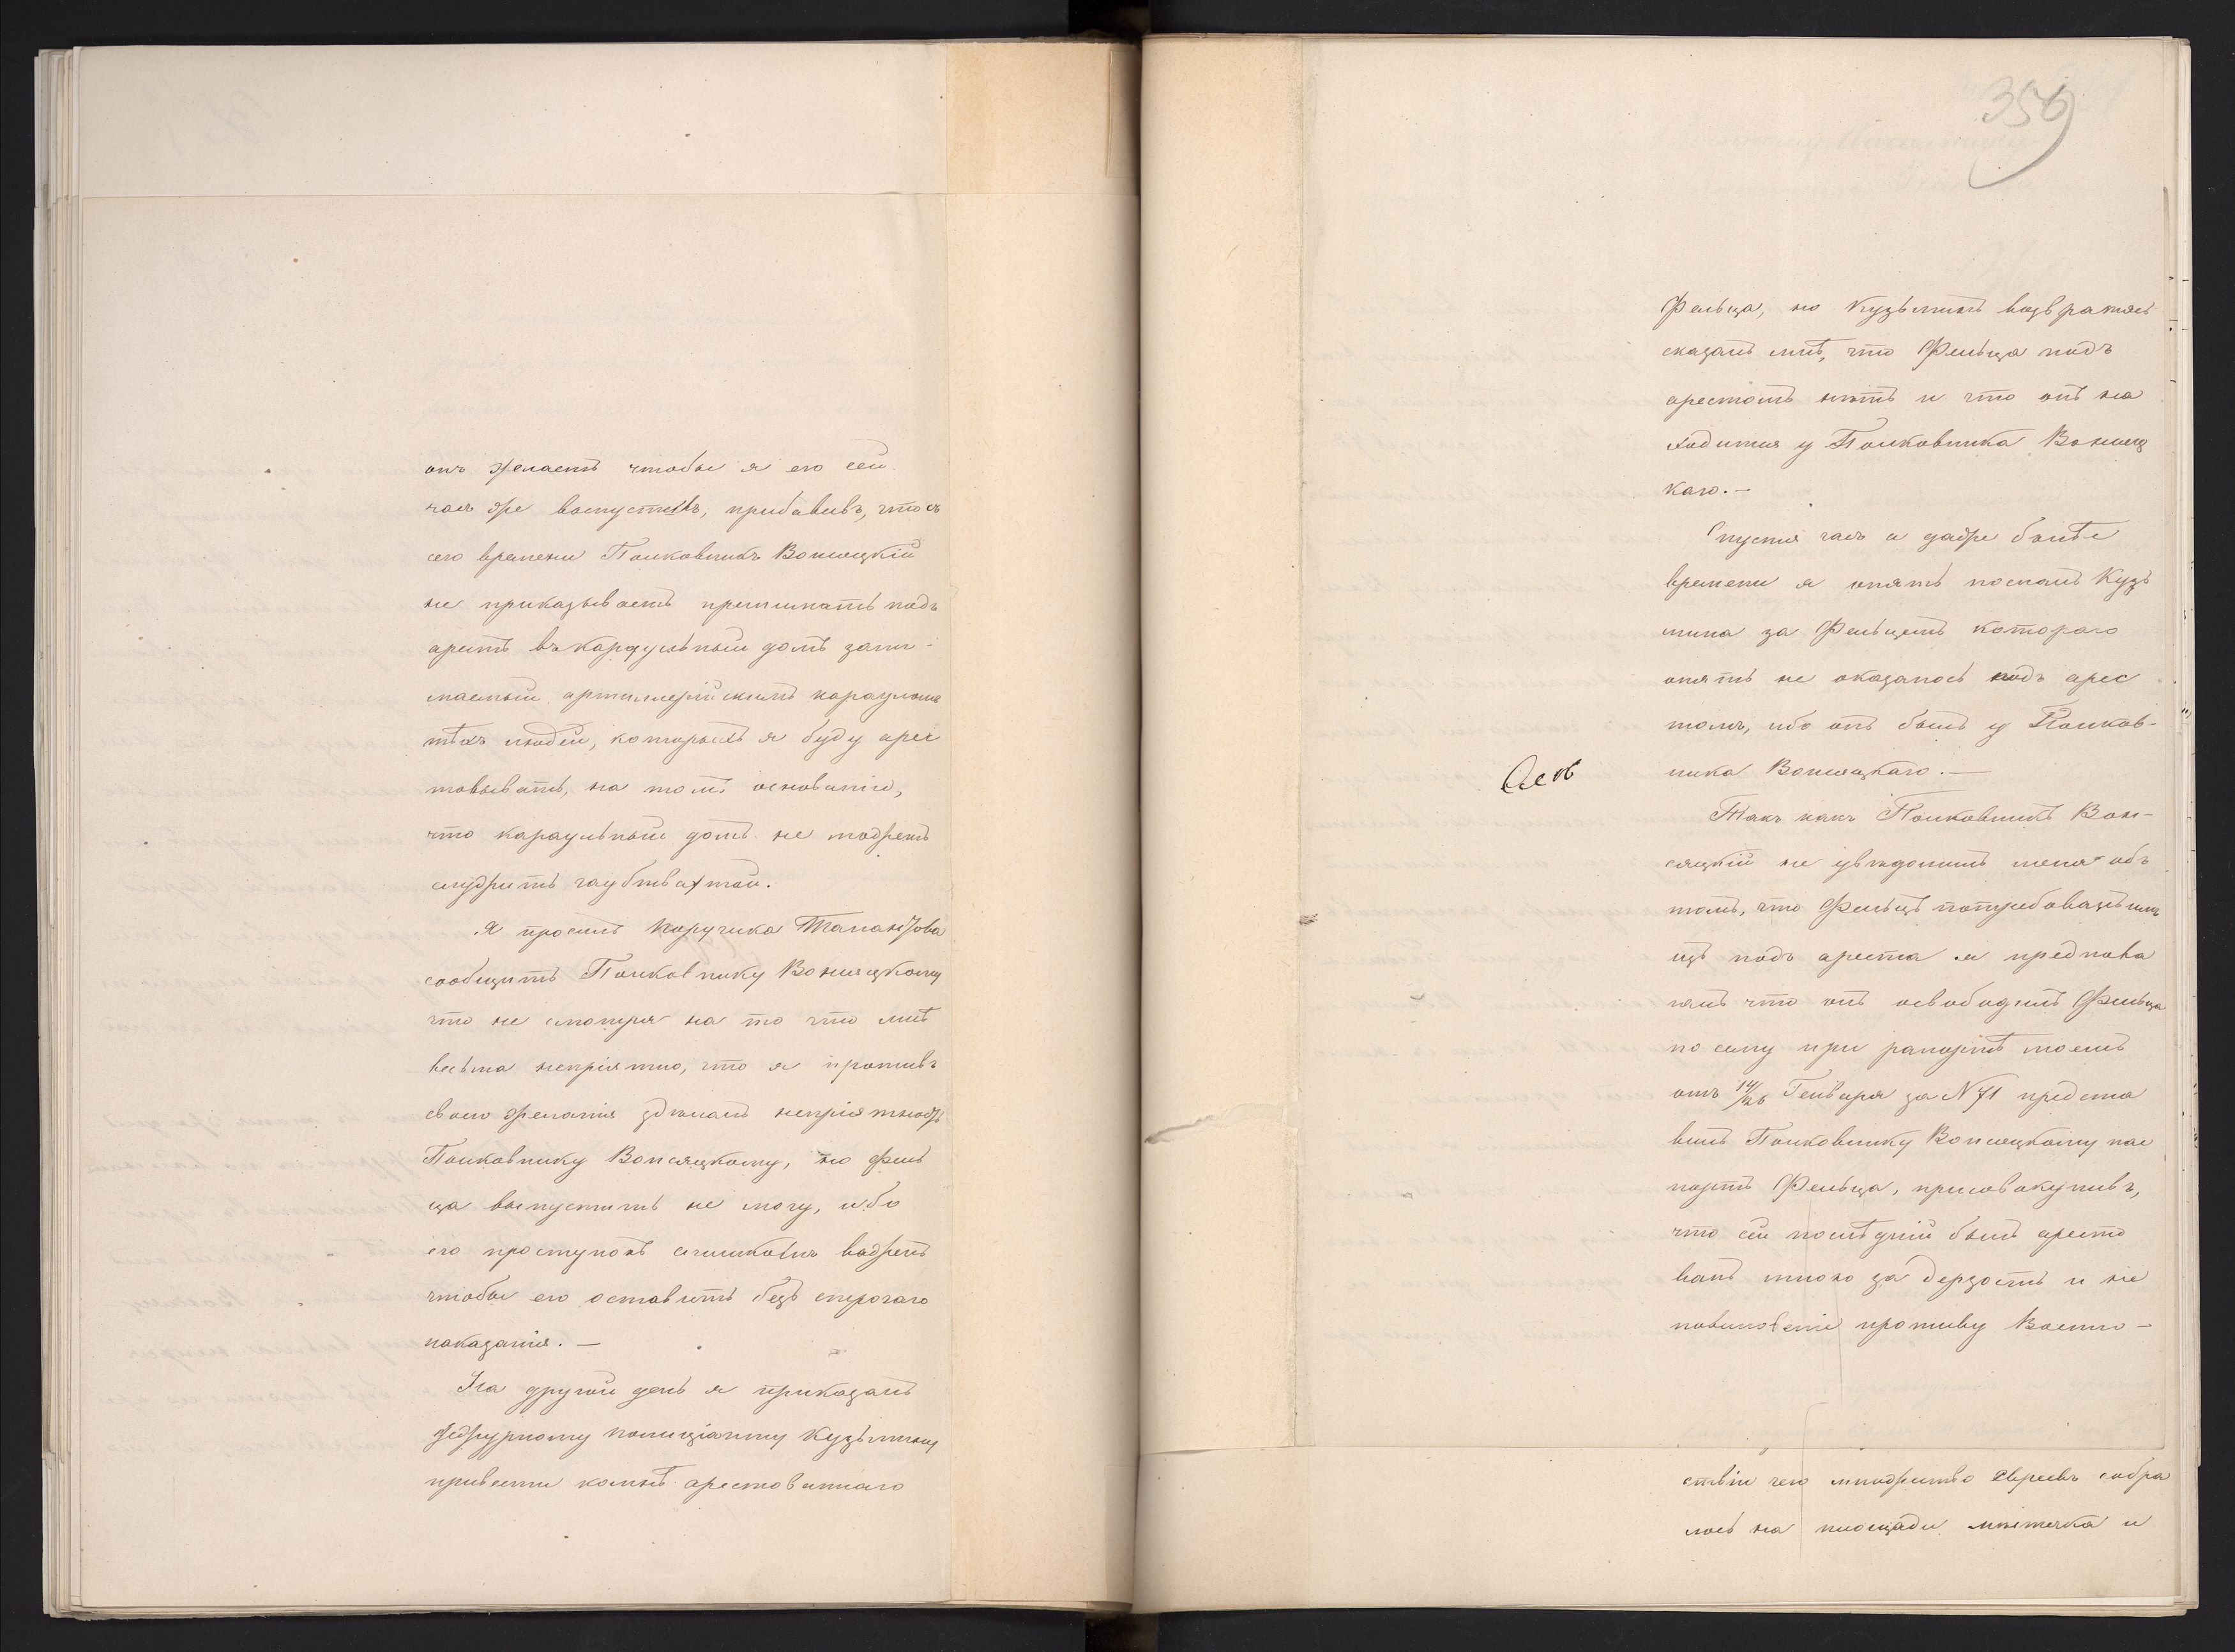 онъ желаетъ чтобы я его сей
часъ же выпустилъ, прибавивъ, что съ
сего времени Полковникъ Вонсяцкій
не приказываетъ принимать подъ
арестъ въ караульный домъ зани-
маемый артиллерійскимъ карауломъ
тѣхъ людей, которыхъ я буду арес
товывать, на томъ основаніи,
что караульный домъ не можетъ
служить гаубтвахтой.
Я просилъ Поручика
сообщить Полковнику Вонсяцкому
что не смотря на то что мнѣ
весьма непріятно, что я противъ
своего желанія здѣлалъ непріятность
Полковнику Вонсяцкому, но Фель
ца выпустить не могу, ибо
его проступокъ слишкомъ важенъ
чтобы его оставить безъ строгаго
наказанія. —
На другой день я приказалъ
дежурному полиціанту Кузьмину
привести комнѣ арестованнаго
356
Фельца, но Кузьминъ возвратясь
сказалъ мнѣ, что Фельца подъ
арестомъ нѣтъ и что онъ на
ходится у Полковника Вонсяц
каго. —
Спустя часъ и даже болѣе
времени я опять послалъ Кузь
мина за Фельцемъ котораго
опять не оказалось подъ арес
томъ, ибо онъ былъ у Полков-
ника Вонсяцкаго. —
Такъ какъ Полковникъ Вон-
сяцкій не увѣдомилъ меня объ
томъ, что Фельцъ потребованъ имъ
изъ подъ ареста я предпола
галъ что онъ освободилъ Фельца
по сему при рапортѣ моемъ
отъ 14/26 Генваря за N 71 предста
вилъ Полковнику Вонсяцкому пас
портъ Фельца, присовокупивъ,
что сей послѣдній былъ аресто
ванъ мною за дерзость и не
повиновеніе противу Военно-
ствіи чего множество Евреевъ собра
лось на площади мѣстечка и